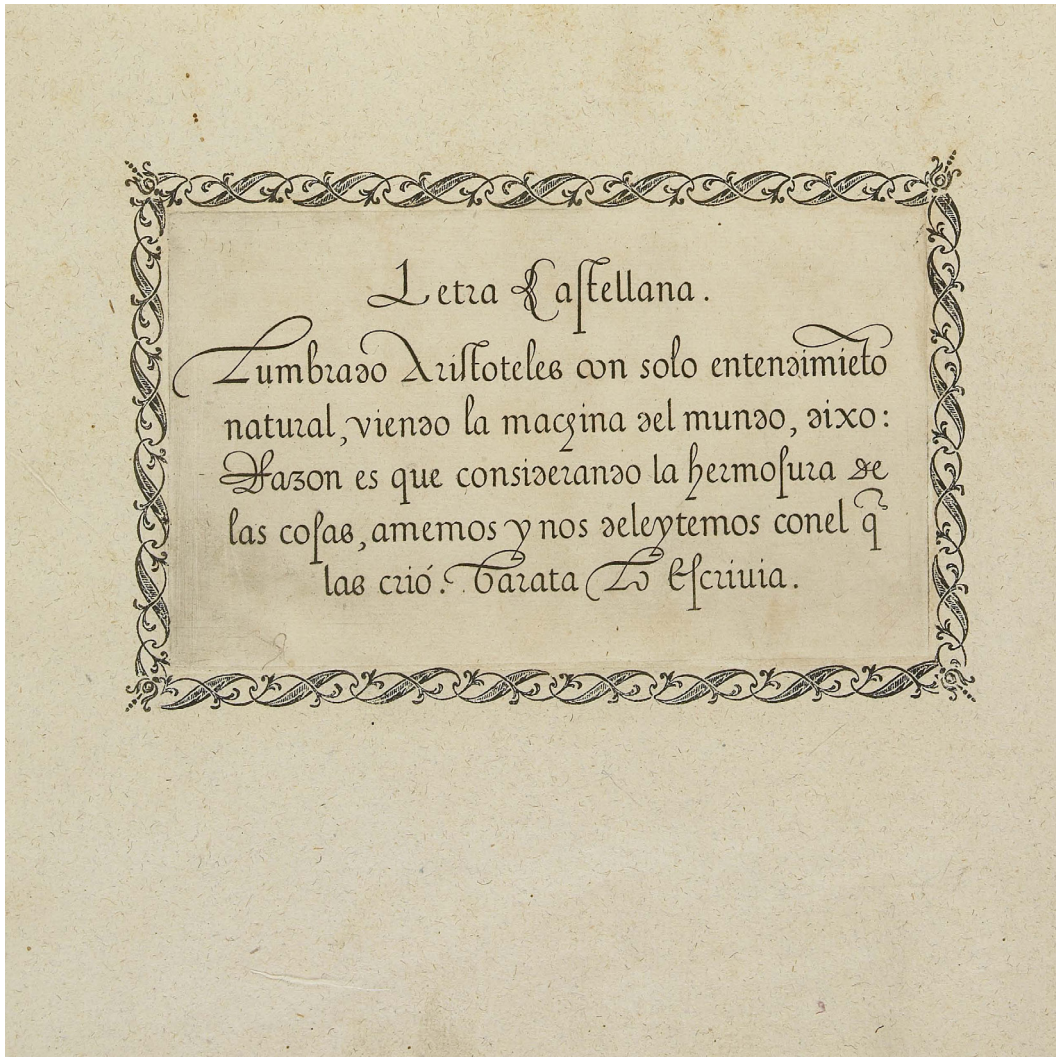 Letra Castellana.
Lumbrado Aristoteles con solo entendimiẽto
natural, viendo la maqina del mundo, dixo:
Razon es que considerando la hermosura de
las cosas, amemos y nos deleytemos conel q̃
las crió. Barata Lo Escriuia.